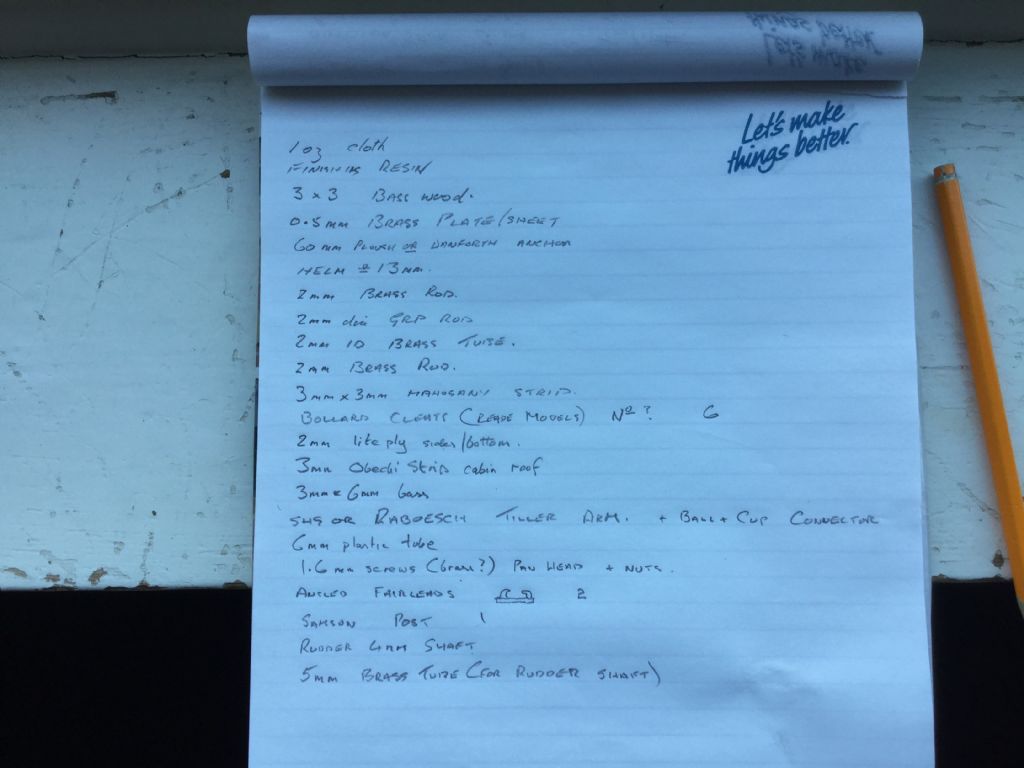 Let's make
things better.
1 oz cloth
FINISHING RESIN
3 x 3 BASS WOOD.
0.5mm BRASS PLATE/SHEET
60mm PLOUGH OR DANFORTH ANCHOR
HELM 13mm.
2mm BRASS ROD.
2mm dia GRP ROD
2mm ID BRASS TUBE.
2mm BRASS ROD.
3mm x 3mm MAHOGANY STRIP.
BOLLARD CLEATS (READE MODELS) Nº ? 6
2mm lite ply sides/bottom.
3mm Obechi Strip cabin roof
3mm x 6mm bass
SHG OR RABOESCH TILLER ARM. + BALL + CUP CONNECTOR
6mm plastic tube
1.6mm screws (brass?) PAN HEAD + NUTS.
ANGLED FAIRLEADS 2
SAMSON POST 1
RUDDER 4mm SHAFT
5mm BRASS TUBE (FOR RUDDER SHAFT)